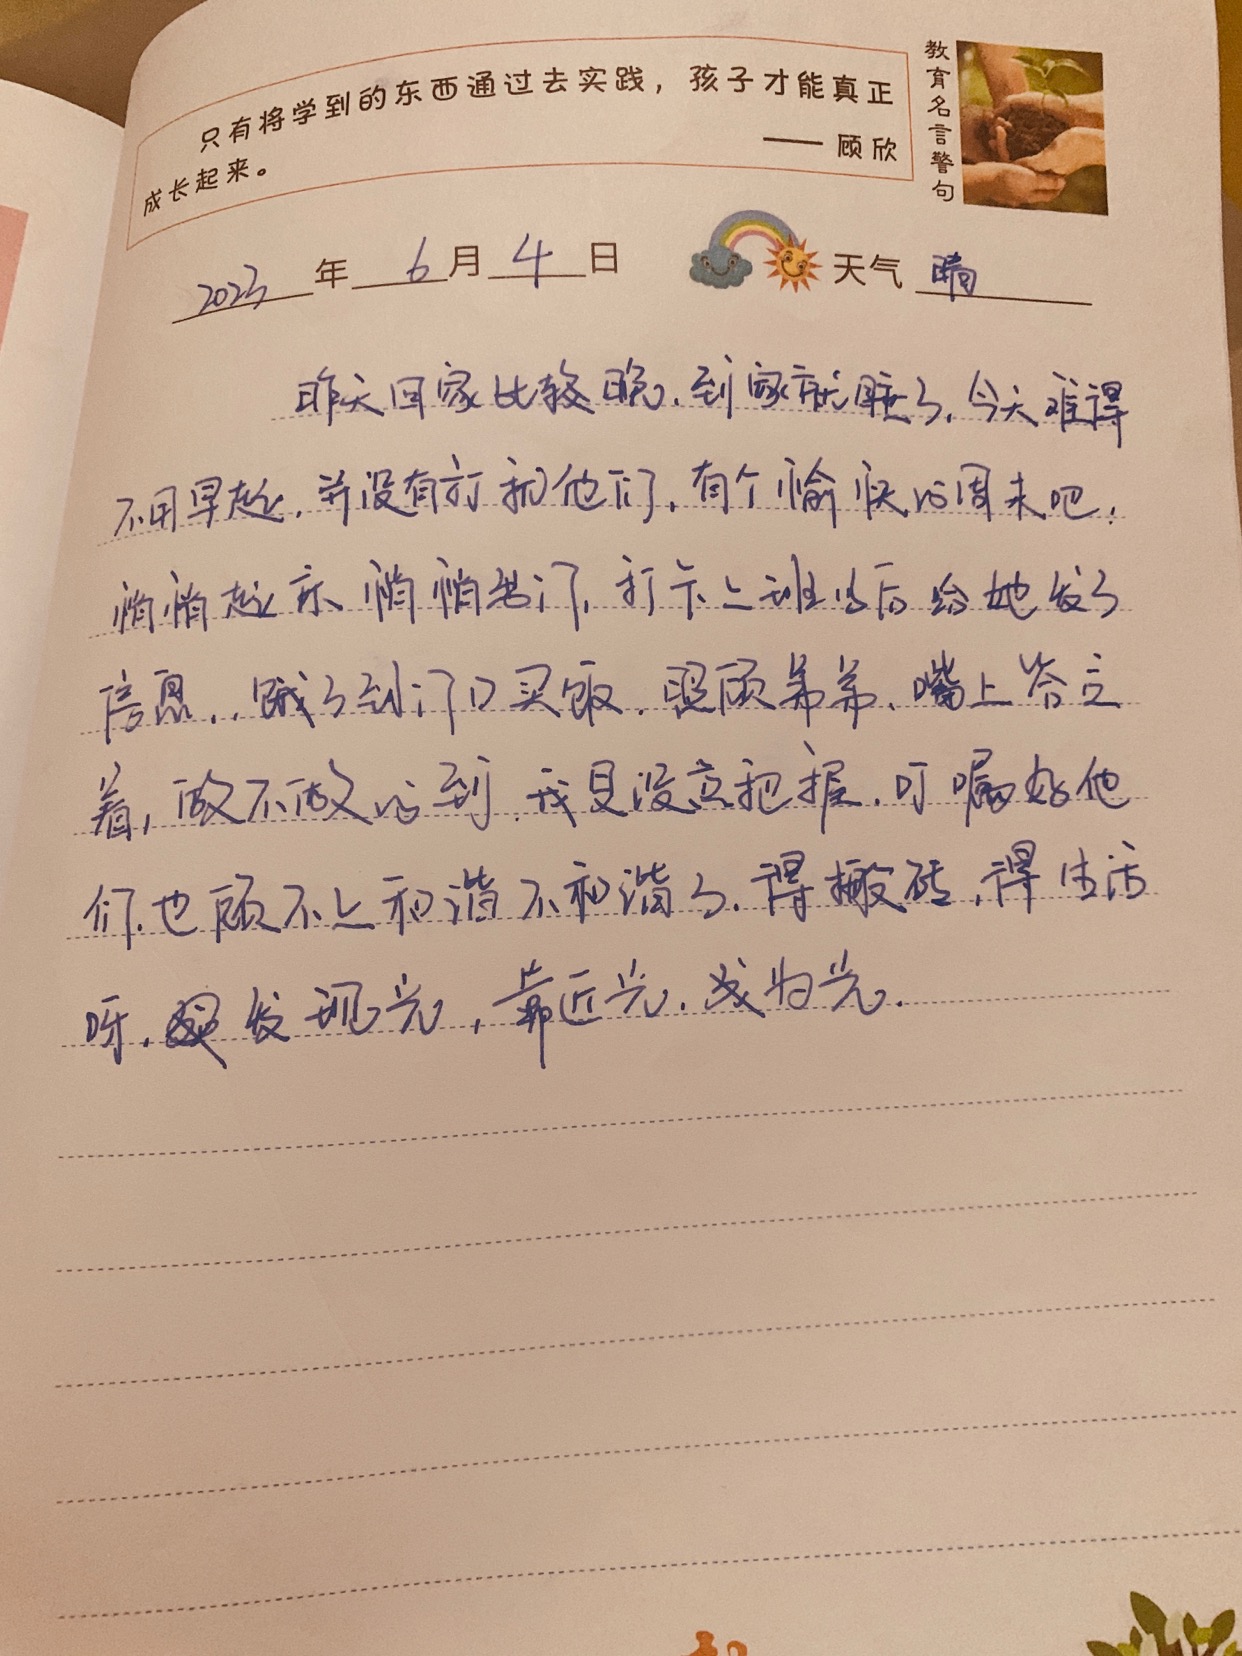 只有将学到的东西通过去实践，孩子才能真正
成长起来。
—— 顾欣
教育名言警句
2023年 6月 4日 天气 晴
昨天回家比较晚，到家就睡了，今天难得
不用早起，并没有打扰他们，有个愉快的周末吧，
悄悄起床 悄悄出门，打卡上班以后给她发了
信息，，饿了到门口买饭，照顾弟弟，嘴上答应
着，做不做的到，我是没有把握，叮嘱好他
们，也顾不上和谐不和谐了，得搬砖，得生活
呀，发现光，靠近光，成为光.